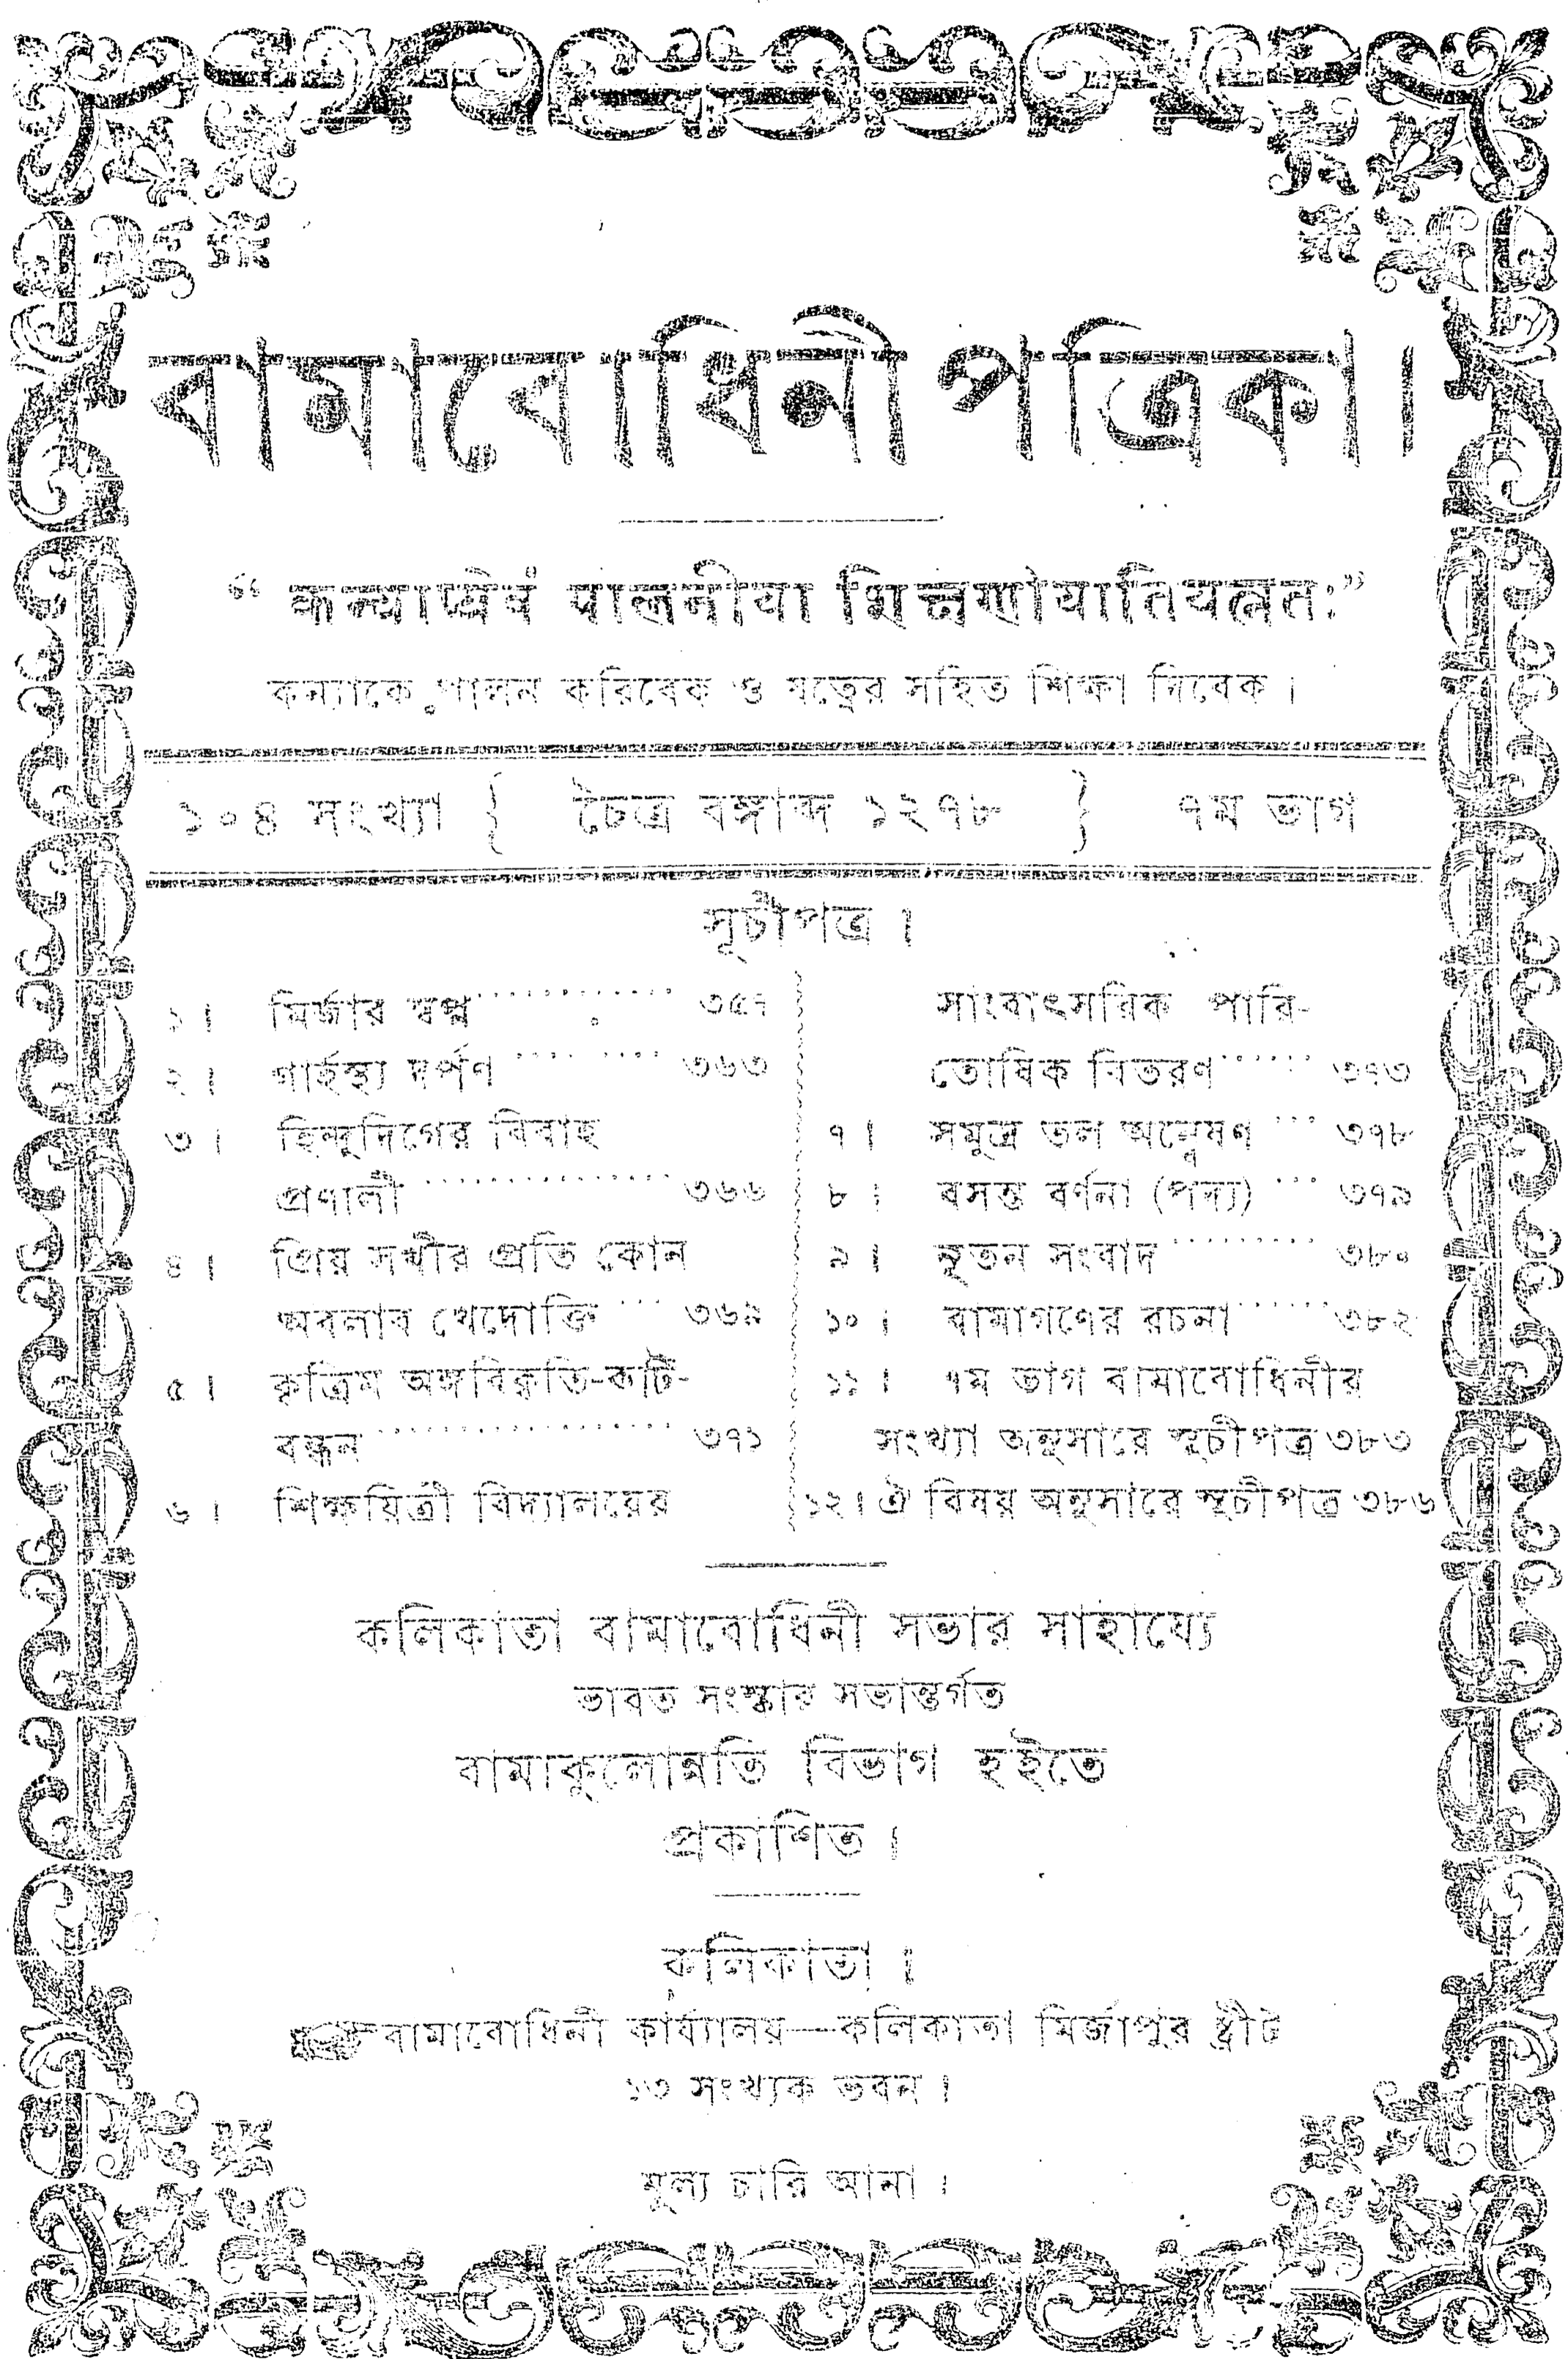 বামাবোধিনী পত্রিকা।
“कन्याप्येवं पालनीया शिक्षणीयातियत्नतः”
কন্যাকে পালন করিবেক ও যত্নের সহিত শিক্ষা দিবেক।
১০৪ সংখ্যা { চৈত্র বঙ্গাব্দ ১২৭৮ } ৭ম ভাগ
সূচীপত্র।
১। মির্জার স্বপ্ন ............... ৩৫৭
২। গার্হস্থ্য দর্পণ ............ ৩৬৩
৩। হিন্দুদিগের বিবাহ
প্রণালী ............... ৩৬৬
৪। প্রিয় সখীর প্রতি কোন
অবলার খেদোক্তি ... ৩৬৯
৫। কৃত্রিম অঙ্গবিকৃতি-কটি-
বন্ধন .................. ৩৭১
৬। শিক্ষয়িত্রী বিদ্যালয়ের
সাংবাৎসরিক পারি-
তোষিক বিতরণ ...... ৩৭৩
৭। সমুদ্র তল অন্বেষণ ... ৩৭৮
৮। বসন্ত বর্ণনা (পদ্য) ... ৩৭৯
৯। নূতন সংবাদ ......... ৩৮০
১০। বামাগণের রচনা ...... ৩৮২
১১। ৭ম ভাগ বামাবোধিনীর
সংখ্যা অনুসারে সূচীপত্র ৩৮৩
১২। ঐ বিষয় অনুসারে সূচীপত্র ৩৮৬
কলিকাতা বামাবোধিনী সভার সাহায্যে
ভারত সংস্কার সভান্তর্গত
বামাকুলোন্নতি বিভাগ হইতে
প্রকাশিত।
কলিকাতা।
বামাবোধিনী কার্য্যালয়—কলিকাতা মির্জাপুর ষ্ট্রীট
১৩ সংখ্যক ভবন।
মূল্য চারি আনা।